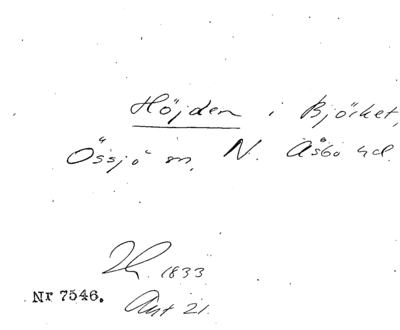 Höjden i Björket,
Össjö sn, N. Åsbo hd.
Lh. 1833
Nr 7546. Akt 21.